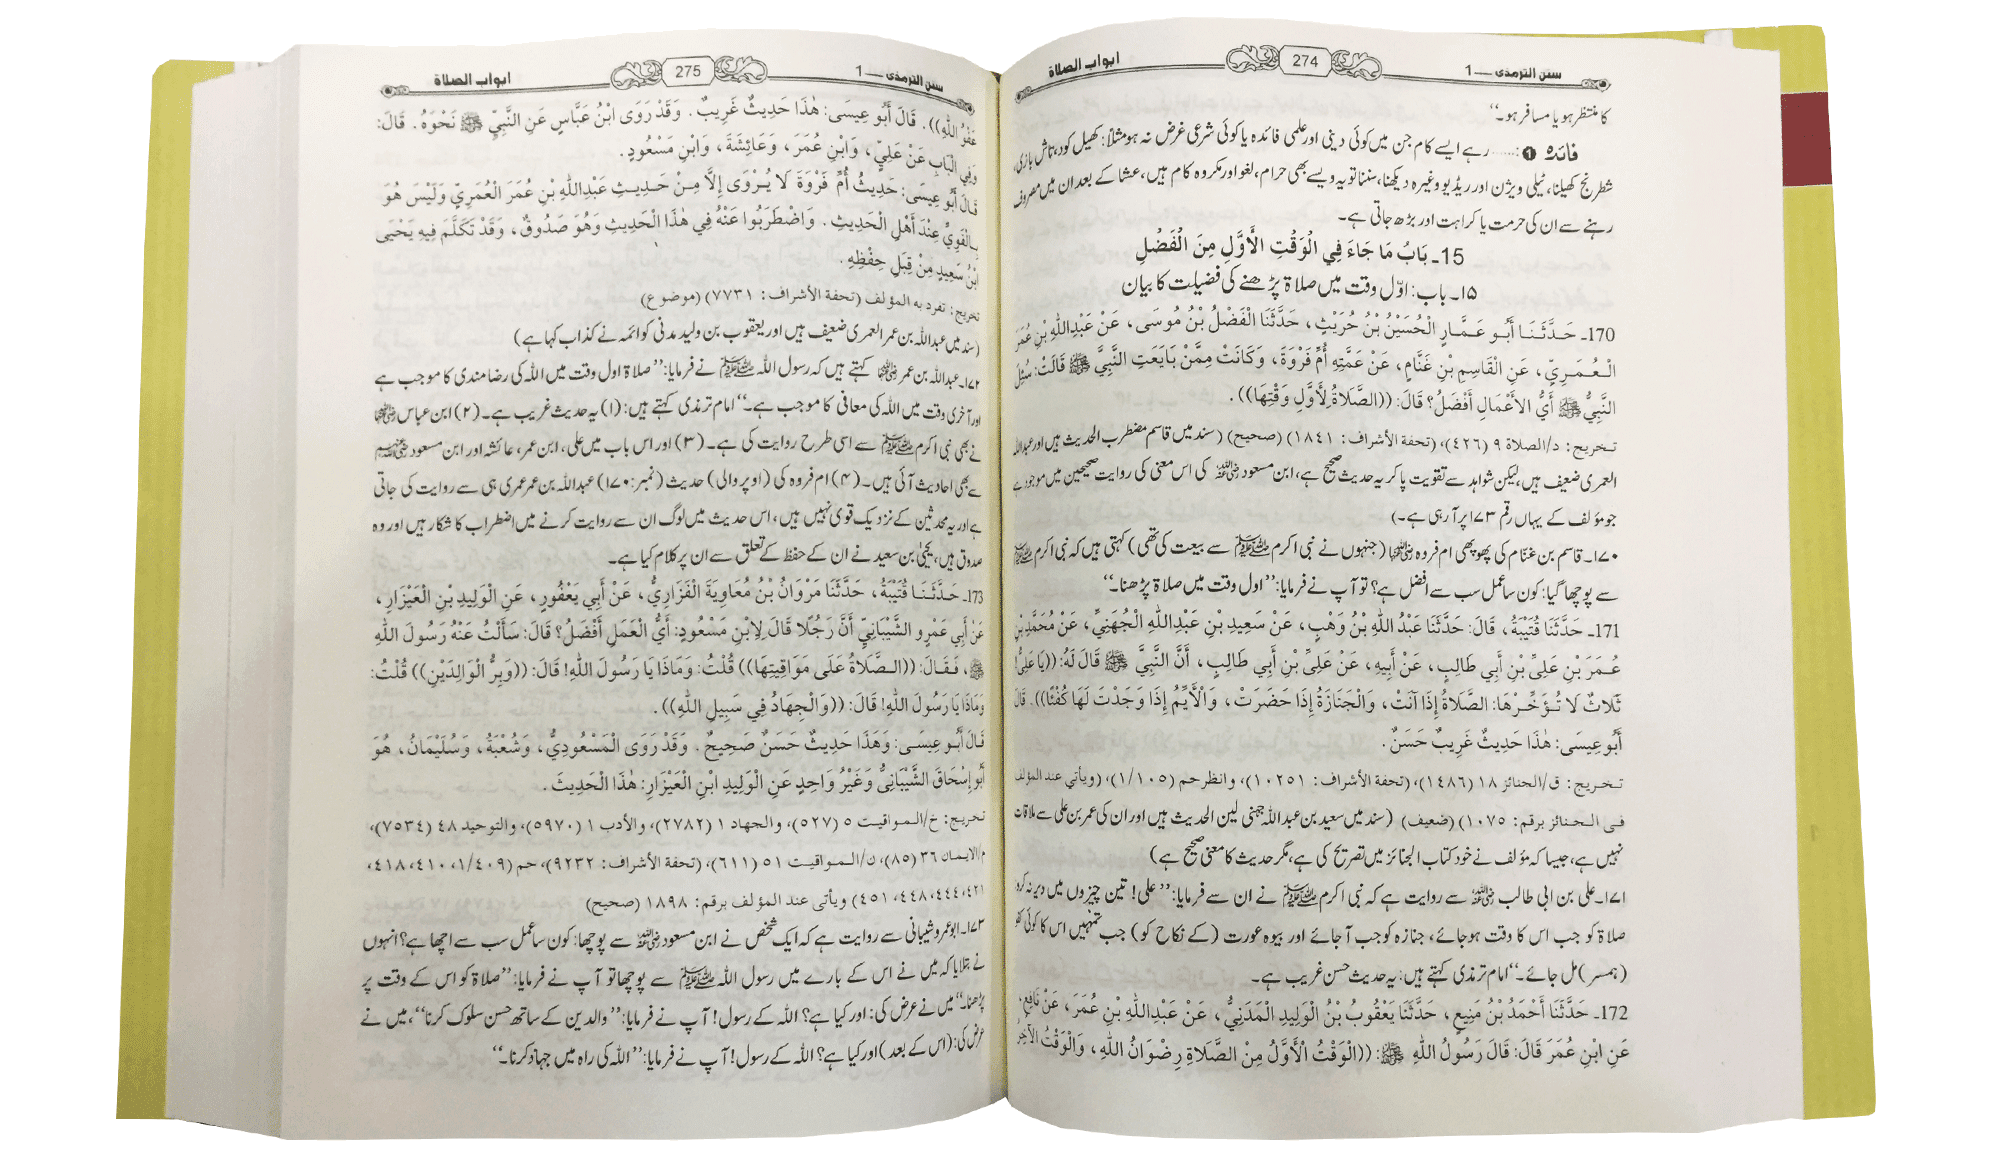 سنن الترمذی — 1
274
ابواب الصلاۃ
کا منتظر ہو یا مسافر ہو۔‘‘
فائدہ ❶ :...... رہے ایسے کام جن میں کوئی دینی اور علمی فائدہ یا کوئی شرعی غرض نہ ہو مثلاً: کھیل کود، تاش بازی،
شطرنج کھیلنا، ٹیلی ویژن اور ریڈیو وغیرہ دیکھنا، سننا تو یہ ویسے بھی حرام، لغو اور مکروہ کام ہیں، عشا کے بعد ان میں مصروف
رہنے سے ان کی حرمت یا کراہت اور بڑھ جاتی ہے۔
15۔ بَابُ مَا جَاءَ فِي الْوَقْتِ الأَوَّلِ مِنَ الْفَضْلِ
۱۵۔ باب: اوّل وقت میں صلاۃ پڑھنے کی فضیلت کا بیان
170۔ حَدَّثَنَا أَبُو عَمَّارٍ الْحُسَيْنُ بْنُ حُرَيْثٍ، حَدَّثَنَا الْفَضْلُ بْنُ مُوسَى، عَنْ عَبْدِاللهِ بْنِ عُمَرَ
الْعُمَرِيِّ، عَنِ الْقَاسِمِ بْنِ غَنَّامٍ، عَنْ عَمَّتِهِ أُمِّ فَرْوَةَ، وَكَانَتْ مِمَّنْ بَايَعَتِ النَّبِيَّ ﷺ قَالَتْ: سُئِلَ
النَّبِيُّ ﷺ أَيُّ الأَعْمَالِ أَفْضَلُ؟ قَالَ: ((الصَّلاَةُ لِأَوَّلِ وَقْتِهَا)) .
تخريج: د/الصلاة ۹ (٤٢٦)، (تحفة الأشراف: ١٨٤١) (صحیح) (سند میں قاسم مضطرب الحدیث ہیں اور عبداللہ
العمری ضعیف ہیں، لیکن شواہد سے تقویت پا کر یہ حدیث صحیح ہے، ابن مسعود رضی اللہ عنہ کی اس معنی کی روایت صحیحین میں موجود ہے
جو مؤلف کے یہاں رقم ۱۷۳ پر آ رہی ہے۔)
۱۷۰۔ قاسم بن غنام کی پھوپھی ام فروہ رضی اللہ عنہا (جنہوں نے نبی اکرم ﷺ سے بیعت کی تھی) کہتی ہیں کہ نبی اکرم ﷺ
سے پوچھا گیا: کون سا عمل سب سے افضل ہے؟ تو آپ نے فرمایا: ’’اول وقت میں صلاۃ پڑھنا۔‘‘
171۔ حَدَّثَنَا قُتَيْبَةُ، قَالَ: حَدَّثَنَا عَبْدُ اللهِ بْنُ وَهْبٍ، عَنْ سَعِيدِ بْنِ عَبْدِاللهِ الْجُهَنِيِّ، عَنْ مُحَمَّدِ بْنِ
عُمَرَ بْنِ عَلِيِّ بْنِ أَبِي طَالِبٍ، عَنْ أَبِيهِ، عَنْ عَلِيِّ بْنِ أَبِي طَالِبٍ، أَنَّ النَّبِيَّ ﷺ قَالَ لَهُ: ((يَا عَلِيُّ!
ثَلاَثٌ لاَ تُؤَخِّرْهَا: الصَّلاَةُ إِذَا آنَتْ، وَالْجَنَازَةُ إِذَا حَضَرَتْ، وَالْأَيِّمُ إِذَا وَجَدْتَ لَهَا كُفْئًا)). قَالَ
أَبُو عِيسَى: هٰذَا حَدِيثٌ غَرِيبٌ حَسَنٌ .
تخريج: ق/الجنائز ۱۸ (١٤٨٦)، (تحفة الأشراف: ١٠٢٥١)، وانظر حم (١/١٠٥)، (ويأتي عند المؤلف
في الجنائز برقم: ١٠٧٥) (ضعيف) (سند میں سعید بن عبداللہ جہنی لین الحدیث ہیں اور ان کی عمر بن علی سے ملاقات
نہیں ہے، جیسا کہ مؤلف نے خود کتاب الجنائز میں تصریح کی ہے، مگر حدیث کا معنی صحیح ہے)
۱۷۱۔ علی بن ابی طالب رضی اللہ عنہ سے روایت ہے کہ نبی اکرم ﷺ نے ان سے فرمایا: ’’علی! تین چیزوں میں دیر نہ کرو:
صلاۃ کو جب اس کا وقت ہو جائے، جنازہ کو جب آ جائے اور بیوہ عورت (کے نکاح کو) جب تمہیں اس کا کوئی کفو
(ہمسر) مل جائے۔‘‘ امام ترمذی کہتے ہیں: یہ حدیث حسن غریب ہے۔
172۔ حَدَّثَنَا أَحْمَدُ بْنُ مَنِيعٍ، حَدَّثَنَا يَعْقُوبُ بْنُ الْوَلِيدِ الْمَدَنِيُّ، عَنْ عَبْدِاللهِ بْنِ عُمَرَ، عَنْ نَافِعٍ،
عَنِ ابْنِ عُمَرَ قَالَ: قَالَ رَسُولُ اللهِ ﷺ: ((الْوَقْتُ الْأَوَّلُ مِنَ الصَّلاَةِ رِضْوَانُ اللهِ، وَالْوَقْتُ الآخِرُ
سنن الترمذی — 1
275
ابواب الصلاۃ
عَفْوُ اللهِ)). قَالَ أَبُو عِيسَى: هٰذَا حَدِيثٌ غَرِيبٌ. وَقَدْ رَوَى ابْنُ عَبَّاسٍ عَنِ النَّبِيِّ ﷺ نَحْوَهُ. قَالَ:
وَفِي الْبَابِ عَنْ عَلِيٍّ، وَابْنِ عُمَرَ، وَعَائِشَةَ، وَابْنِ مَسْعُودٍ.
قَالَ أَبُو عِيسَى: حَدِيثُ أُمِّ فَرْوَةَ لَا يُرْوَى إِلَّا مِنْ حَدِيثِ عَبْدِاللهِ بْنِ عُمَرَ الْعُمَرِيِّ وَلَيْسَ هُوَ
بِالْقَوِيِّ عِنْدَ أَهْلِ الْحَدِيثِ. وَاضْطَرَبُوا عَنْهُ فِي هٰذَا الْحَدِيثِ وَهُوَ صَدُوقٌ، وَقَدْ تَكَلَّمَ فِيهِ يَحْيَى
ابْنُ سَعِيدٍ مِنْ قِبَلِ حِفْظِهِ .
تخريج: تفرد به المؤلف (تحفة الأشراف: ٧٧٣١) (موضوع)
(سند میں عبداللہ بن عمر العمری ضعیف ہیں اور یعقوب بن ولید مدنی کو ائمہ نے کذاب کہا ہے)
۱۷۲۔ عبداللہ بن عمر رضی اللہ عنہما کہتے ہیں کہ رسول اللہ ﷺ نے فرمایا: ’’صلاۃ اول وقت میں اللہ کی رضا مندی کا موجب ہے
اور آخری وقت میں اللہ کی معافی کا موجب ہے۔‘‘ امام ترمذی کہتے ہیں: (۱) یہ حدیث غریب ہے۔ (۲) ابن عباس رضی اللہ عنہما
نے بھی نبی اکرم ﷺ سے اسی طرح روایت کی ہے۔ (۳) اور اس باب میں علی، ابن عمر، عائشہ اور ابن مسعود رضی اللہ عنہم
سے بھی احادیث آئی ہیں۔ (۴) ام فروہ کی (اوپر والی) حدیث (نمبر: ۱۷۰) عبداللہ بن عمر عمری ہی سے روایت کی جاتی
ہے اور یہ محدثین کے نزدیک قوی نہیں ہیں، اس حدیث میں لوگ ان سے روایت کرنے میں اضطراب کا شکار ہیں اور وہ
صدوق ہیں، یحییٰ بن سعید نے ان کے حفظ کے تعلق سے ان پر کلام کیا ہے۔
173۔ حَدَّثَنَا قُتَيْبَةُ، حَدَّثَنَا مَرْوَانُ بْنُ مُعَاوِيَةَ الْفَزَارِيُّ، عَنْ أَبِي يَعْفُورٍ، عَنِ الْوَلِيدِ بْنِ الْعَيْزَارِ،
عَنْ أَبِي عَمْرٍو الشَّيْبَانِيِّ أَنَّ رَجُلًا قَالَ لِابْنِ مَسْعُودٍ: أَيُّ الْعَمَلِ أَفْضَلُ؟ قَالَ: سَأَلْتُ عَنْهُ رَسُولَ اللهِ
ﷺ، فَقَالَ: ((الصَّلاَةُ عَلَى مَوَاقِيتِهَا)) قُلْتُ: وَمَاذَا يَا رَسُولَ اللهِ! قَالَ: ((وَبِرُّ الْوَالِدَيْنِ)) قُلْتُ:
وَمَاذَا يَا رَسُولَ اللهِ! قَالَ: ((وَالْجِهَادُ فِي سَبِيلِ اللهِ)) .
قَالَ أَبُو عِيسَى: وَهَذَا حَدِيثٌ حَسَنٌ صَحِيحٌ . وَقَدْ رَوَى الْمَسْعُودِيُّ، وَشُعْبَةُ، وَسُلَيْمَانُ، هُوَ
أَبُو إِسْحَاقَ الشَّيْبَانِيُّ وَغَيْرُ وَاحِدٍ عَنِ الْوَلِيدِ ابْنِ الْعَيْزَارِ: هٰذَا الْحَدِيثَ .
تخريج: خ/المواقيت ٥ (٥٢٧)، والجهاد ١ (٢٧٨٢)، والأدب ١ (٥٩٧٠)، والتوحيد ٤٨ (٧٥٣٤)،
م/الايمان ٣٦ (٨٥)، ن/المواقيت ٥١ (٦١١)، (تحفة الأشراف: ٩٢٣٢)، حم (١/٤٠٩، ٤١٠، ٤١٨،
٤٢١، ٤٤٤، ٤٤٨، ٤٥١) ويأتى عند المؤلف برقم: ١٨٩٨ (صحيح)
۱۷۳۔ ابو عمرو شیبانی سے روایت ہے کہ ایک شخص نے ابن مسعود رضی اللہ عنہ سے پوچھا: کون سا عمل سب سے اچھا ہے؟ انہوں
نے بتلایا کہ میں نے اس کے بارے میں رسول اللہ ﷺ سے پوچھا تو آپ نے فرمایا: ’’صلاۃ کو اس کے وقت پر
پڑھنا۔‘‘ میں نے عرض کی: اور کیا ہے؟ اللہ کے رسول! آپ نے فرمایا: ’’والدین کے ساتھ حسن سلوک کرنا‘‘، میں نے
عرض کی: (اس کے بعد) اور کیا ہے؟ اللہ کے رسول! آپ نے فرمایا: ’’اللہ کی راہ میں جہاد کرنا۔‘‘